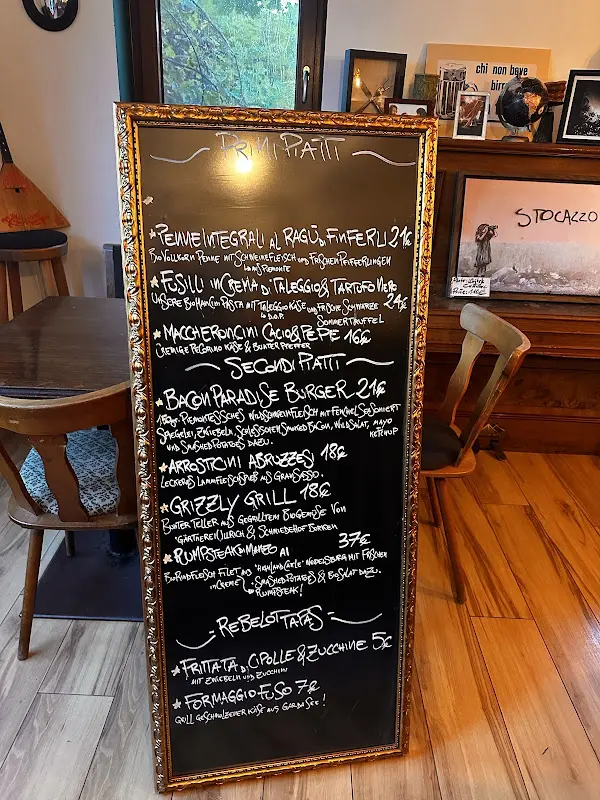 chi non beve
STOCAZZO
PRIMI PIATTI
PENNE INTEGRALI AL RAGÙ DI FINFERLI 21€
BIO VOLLKORN PENNE MIT SCHWEINEFLEISCH UND FRISCHEN PFIFFERLINGEN
AUS PIEMONTE
FUSILLI IN CREMA DI TALEGGIO & TARTUFO NERO
UNSERE BIO PASTA MIT TALEGGIO KÄSE UND FRISCHE SCHWARZE 24€
D.O.P. SOMMERTRÜFFEL
MACCHERONCINI CACIO & PEPE 16€
CREMIGE PECORINO KÄSE & BUNTER PFEFFER
SECONDI PIATTI
BACON PARADISE BURGER 21€
PIEMONTESISCHES WILDSCHWEINFLEISCH MIT FENCHELSESAMIERT
SPIEGELEI, ZWIEBELN, SMOKED BACON, WILDSALAT, MAYO
UND SMASHED POTATOES DAZU. KETCHUP
ARROSTICINI ABRUZZESI 18€
LECKERES LAMMFLEISCHSPIESS AUS GRAN SASSO.
GRIZZLY GRILL 18€
BUNTER TELLER AUS GEGRILLTEM BIOGEMÜSE VON
GÄRTNEREI ULRICH & SCHMIEDEHOF
RUMPSTEAK DI MANZO AI 37€
BIO RINDFLEISCH FILET AUS "HIGHLAND CATTLE" MIT FRISCHEN
SMASHED POTATOES & BIO SALAT DAZU.
RUMPSTEAK!
REBELOT TAPAS
FRITTATA DI CIPOLLE & ZUCCHINE 5€
MIT ZWIEBELN UND ZUCCHINI
FORMAGGIO FUSO 7€
GEIL GESCHMOLZENER KÄSE AUS GARDASEE!